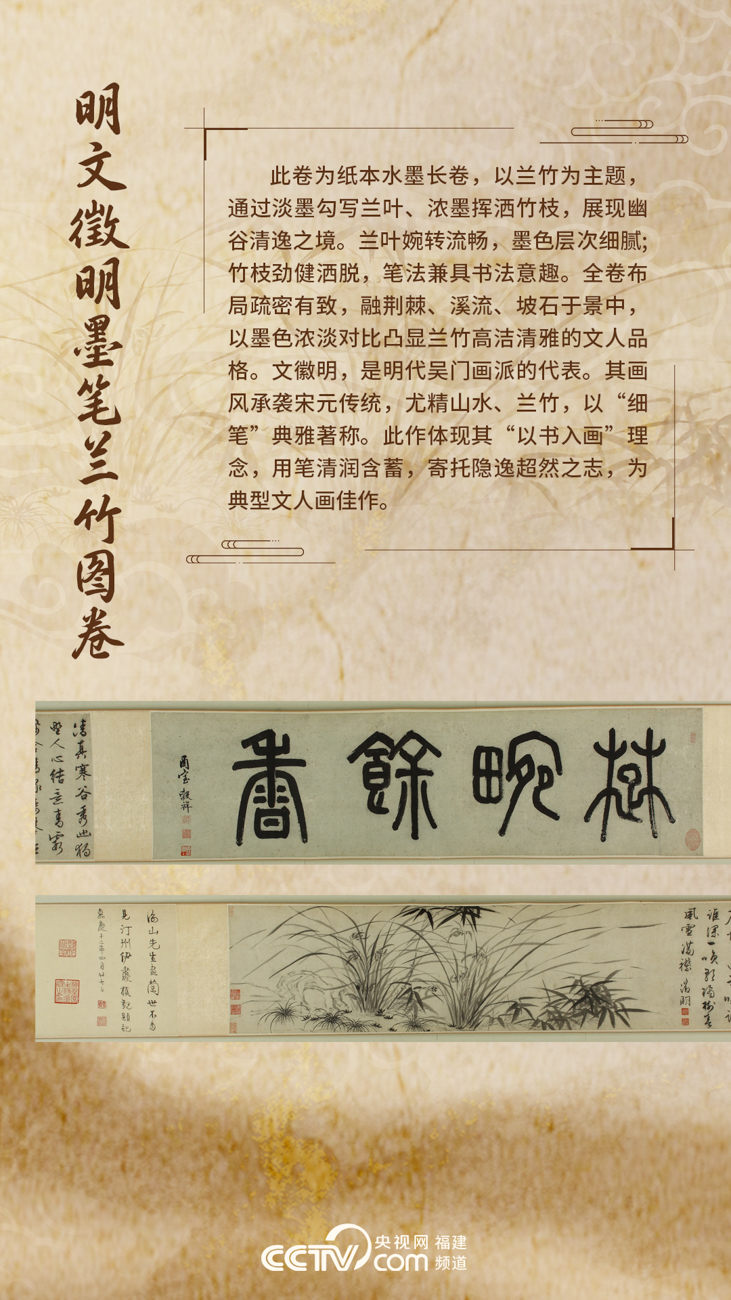 明文徵明墨笔兰竹图卷
此卷为纸本水墨长卷，以兰竹为主题，
通过淡墨勾写兰叶、浓墨挥洒竹枝，展现幽
谷清逸之境。兰叶婉转流畅，墨色层次细腻;
竹枝劲健洒脱，笔法兼具书法意趣。全卷布
局疏密有致，融荆棘、溪流、坡石于景中，
以墨色浓淡对比凸显兰竹高洁清雅的文人品
格。文徽明，是明代吴门画派的代表。其画
风承袭宋元传统，尤精山水、兰竹，以“细
笔”典雅著称。此作体现其“以书入画”理
念，用笔清润含蓄，寄托隐逸超然之志，为
典型文人画佳作。
畹餘香
清真寒谷秀幽獨
野人心結
風雪滿襟
海山先生
見汀州伊
CCTV.com
央视网 福建
频道